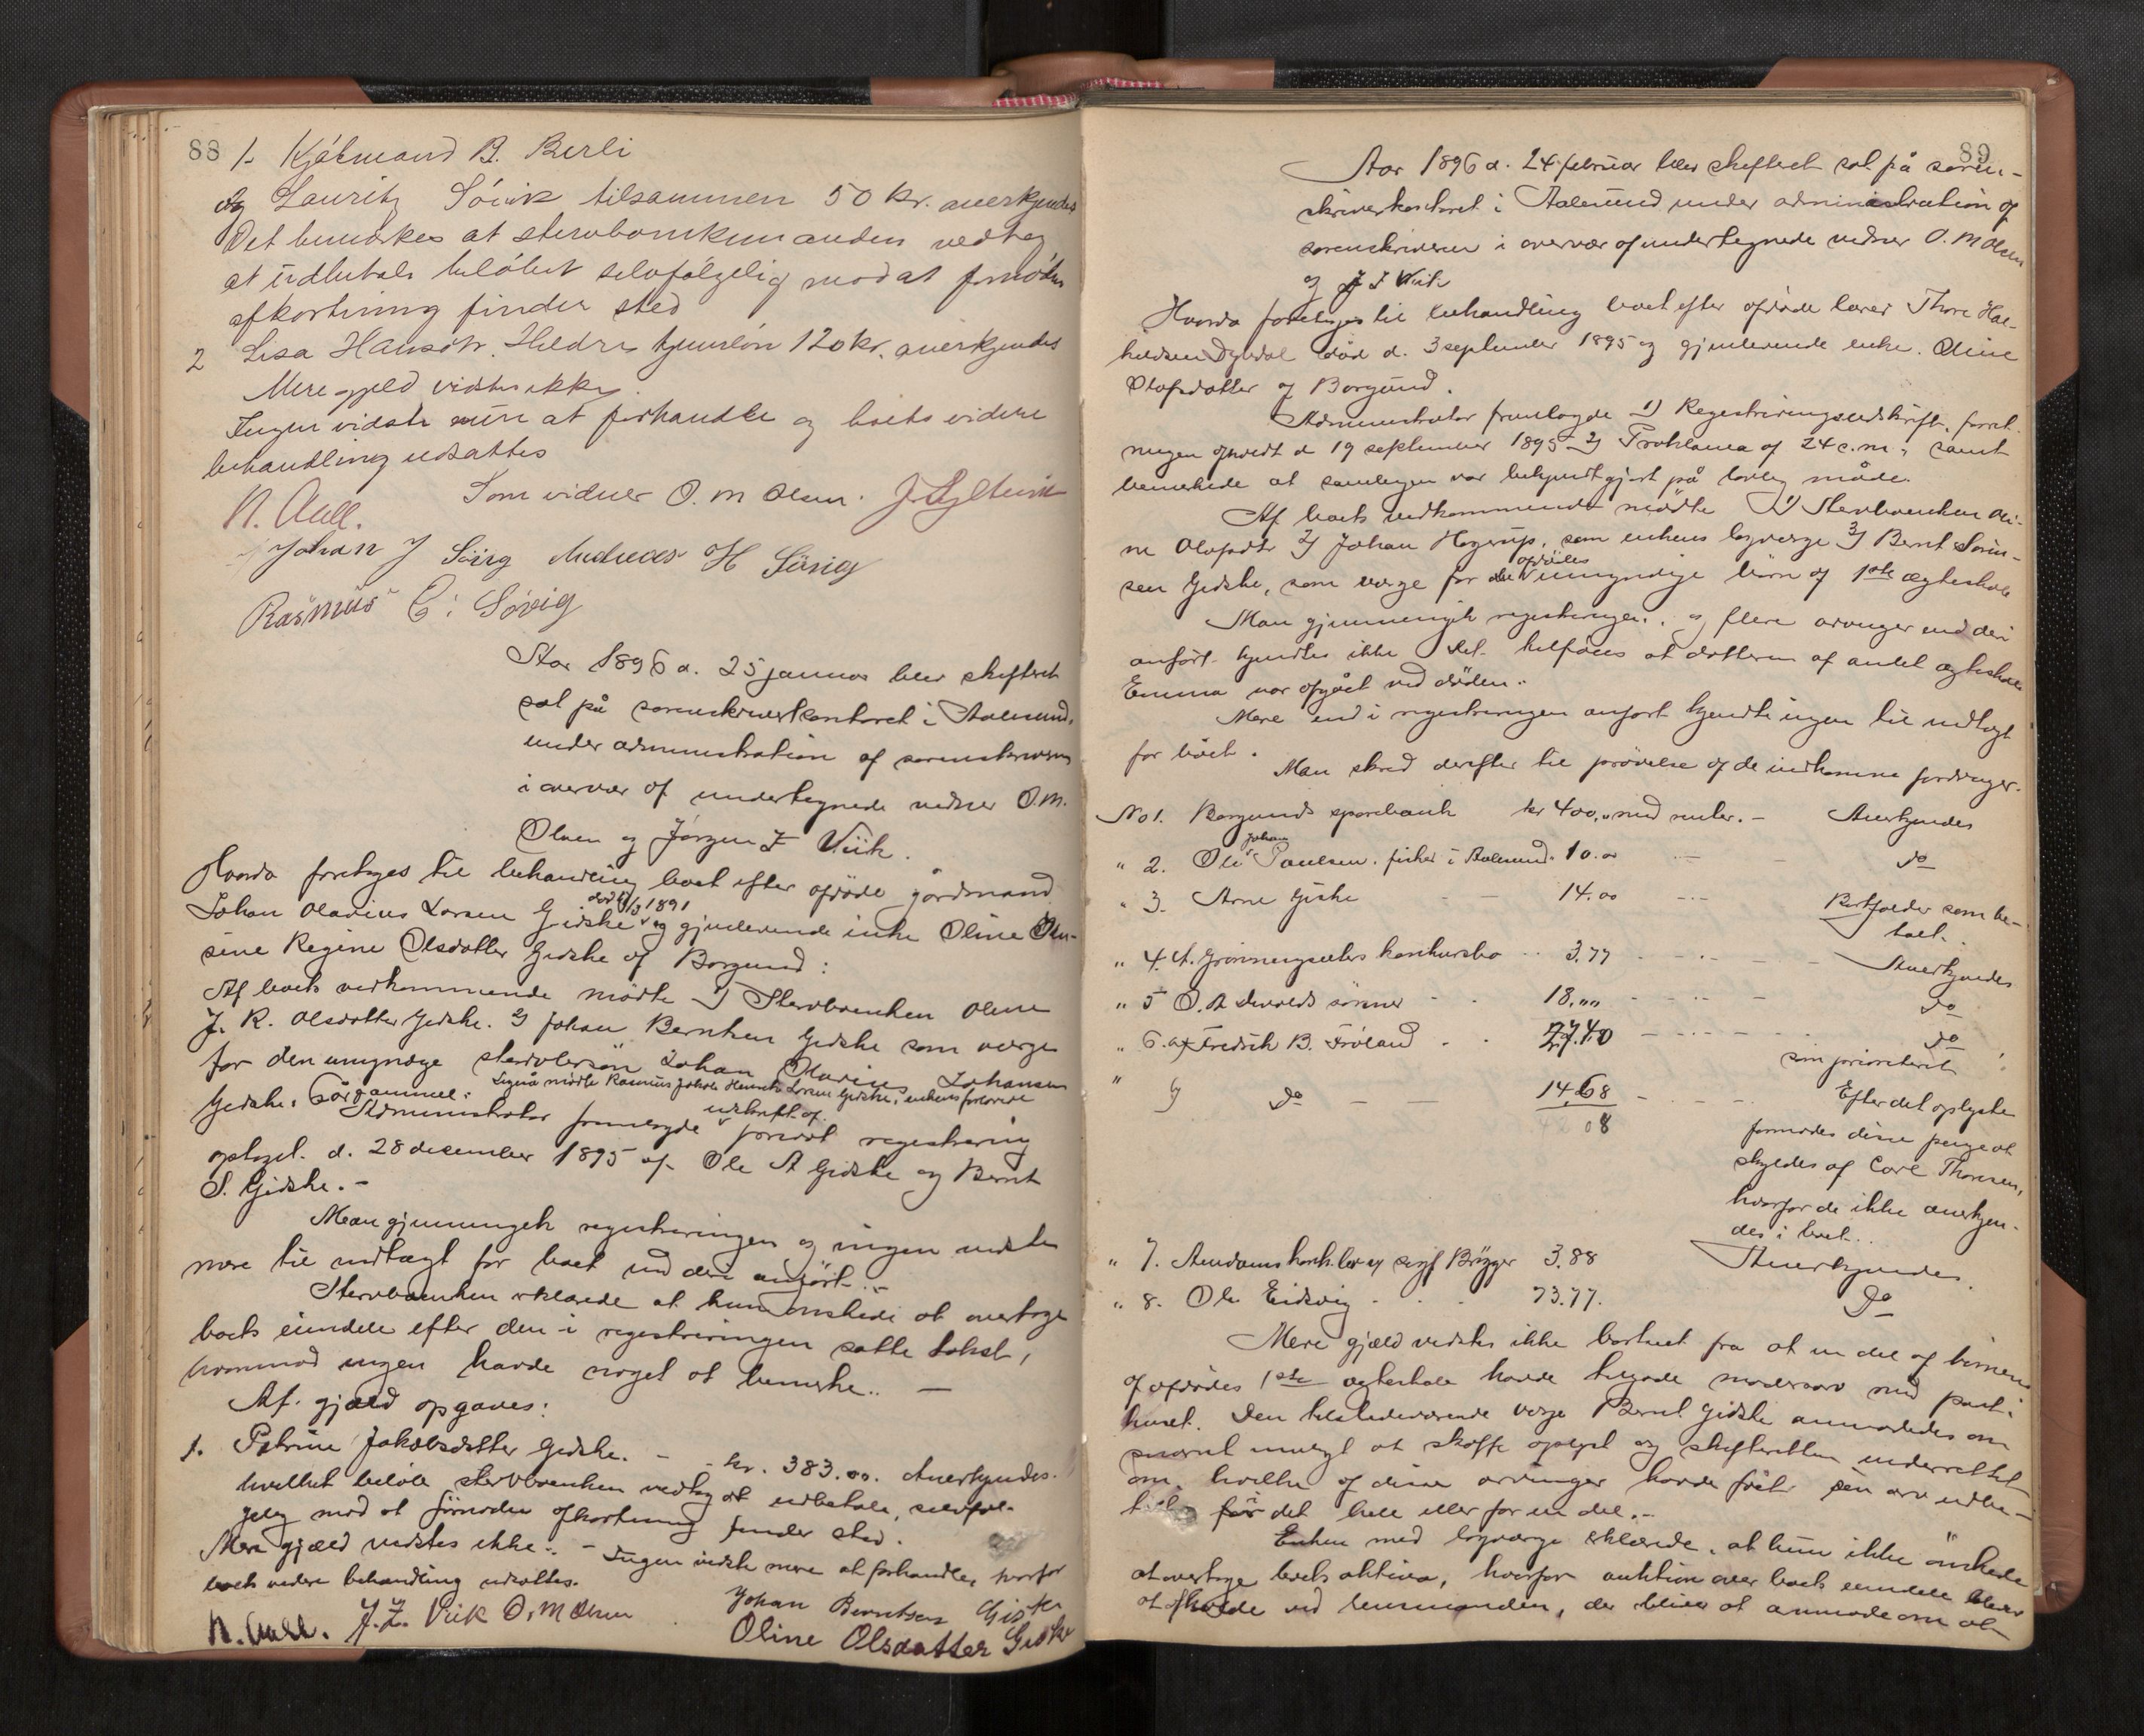 88
1. Kjøbmand B. Berli
og Lauritz Sövik tilsammen 50 kr. anerkjendes
Det bemærkes at stervboenkemanden vedtog
at udbetale beløbet selvfølgelig mod at fornøden
afkortning finder sted
2 Lisa Hansdtr. Hildre tjenerløn 120 kr. anerkjendes
Mere gjæld vidstes ikke.
Ingen vidste mere at forhandle og boets videre
behandling udsattes
Som vidner O. M Olsen.
N. Aall.
Johan J Sövig Andreas H Sövig
Rasmus E: Sövig
Aar 1896 d. 25 januar blev skifteret
sat på sorenskriverkontoret i Aalesund,
under administration af sorenskriveren
i overvær af undertegnede vidner O. M.
Olsen og Jörgen Z Viik.
Hvorda foretoges til behandling boet efter afdøde gårdmand
død 1891
Johan Olavius Larsen Gidske og gjenlevende enke Oline
sine Regine Olsdatter Gidske af Borgund:
Af boets vedkommende mødte 1) Stervboenken Oline
J. R. Olsdatter Gidske. 2) Johan Berntsen Gidske som værge
for den umyndige stervbosøn Johan Olavius Johansen
Gidske. Ligeså mødte Rasmus Jakob Henrik Larsen Gidske, enkens forlovede
Administrator fremlagde udskrift af foreløb registrering
optaget d. 28 december 1895 af Ole A Gidske og Bernt
S. Gidske. -
Man gjennemgik registreringen og ingen vidste
mere til indtægt for boet end deri anført. -
Stervboenken erklærede at hun ønskede at overtage
boets eiendele efter den i registreringen satte takst,
hvormod ingen havde noget at bemerke. —
Af gjæld opgaves:
1. Petrine Jakobsdatter Gidske. - - kr. 383.00. Anerkjendes.
hvilket beløb stervboenken vedtog at udbetale, selvføl-
gelig mod at fornøden afkortning finder sted.
Mere gjæld vidstes ikke. - Ingen vidste mere at forhandle, hvorfor
boets videre behandling udsattes.
N. Aall. J. Z. Viik O. M Olsen Johan Berntsen Giske
Oline Olsdatter Giske
89
Aar 1896 d. 24 februar blev skifteret sat på soren-
skriverkontoret i Aalesund under administration af
sorenskriveren i overvær af undertegnede vidner O. M Olsen
og J Z Viik
Hvorda foretoges til behandling boet efter afdøde lærer Thore Hal-
død d. 3 september 1895 og gjenlevende enke Oline
Olafsdatter af Borgund.
Administrator fremlagde 1) Registreringsudskrift, forret-
ningen afholdt d 19 september 1895 2) Proklama af 24 c. m., samt
bemerkede at samlingen var bekjendtgjort på lovlig måde.
Af boets vedkommende mødte 1) Stervboenken Oli-
ne Olafsdtr 2) Johan Hogerup, som enkens lagværge 3) Bernt Sørin-
sen Gidske, som værge for afdødes umyndige børn af 1ste ægteskab
Man gjennemgik registreringen, og flere arvinger end deri
anført kjendtes ikke. Det tilføies at datteren af andet ægteskab
Emma var afgået ved døden.
Mere end i registreringen anført kjendte ingen til indtægt
for boet.
Man skred derefter til prøvelse af de indkomne fordringer.
No 1. Borgunds sparebank kr 400,, med renter. - Anerkjendes
" 2. Ole Johan Paulsen. fisker i Aalesund. 10.00 - - do
" 3. Arne Giske - - 14.00 - - Bortfalder som be-
talt.
" 4. A. Grønningsæters konkursbo - 3.77 - - Anerkjendes
" 5 O. A Devolds sønner - - 18.,, - - do
" 6. a) Fredrik B. Frøland - - 27.40 - - do
som prioriteret
" b) do - - 14.68 - - Efter det oplyste
08
formodes disse penge at
skyldes af Carl Thoresen,
hvorfor de ikke anerkjen-
des i boet.
" 7. 3.88 Anerkjendes.
" 8. Ole Eidsvig - - 73.77. do
Mere gjæld vidstes ikke bortset fra at en del af børnene
af afdødes 1ste ægteskab havde tilgode mødrearv
Den tilstedeværende værge Bernt Gidske anmodedes om
snarest muligt at skaffe oplyst og skifteretten underrettet
om hvilke af disse arvinger havde fået sin arv udbe-
talt for det hele eller for en del. -
Enken med lagværge erklærede, at hun ikke ønskede
at overtage boets aktiva, hvorfor auktion over boets eiendele blev
at afholde ved lensmanden, der bliver at anmode om at